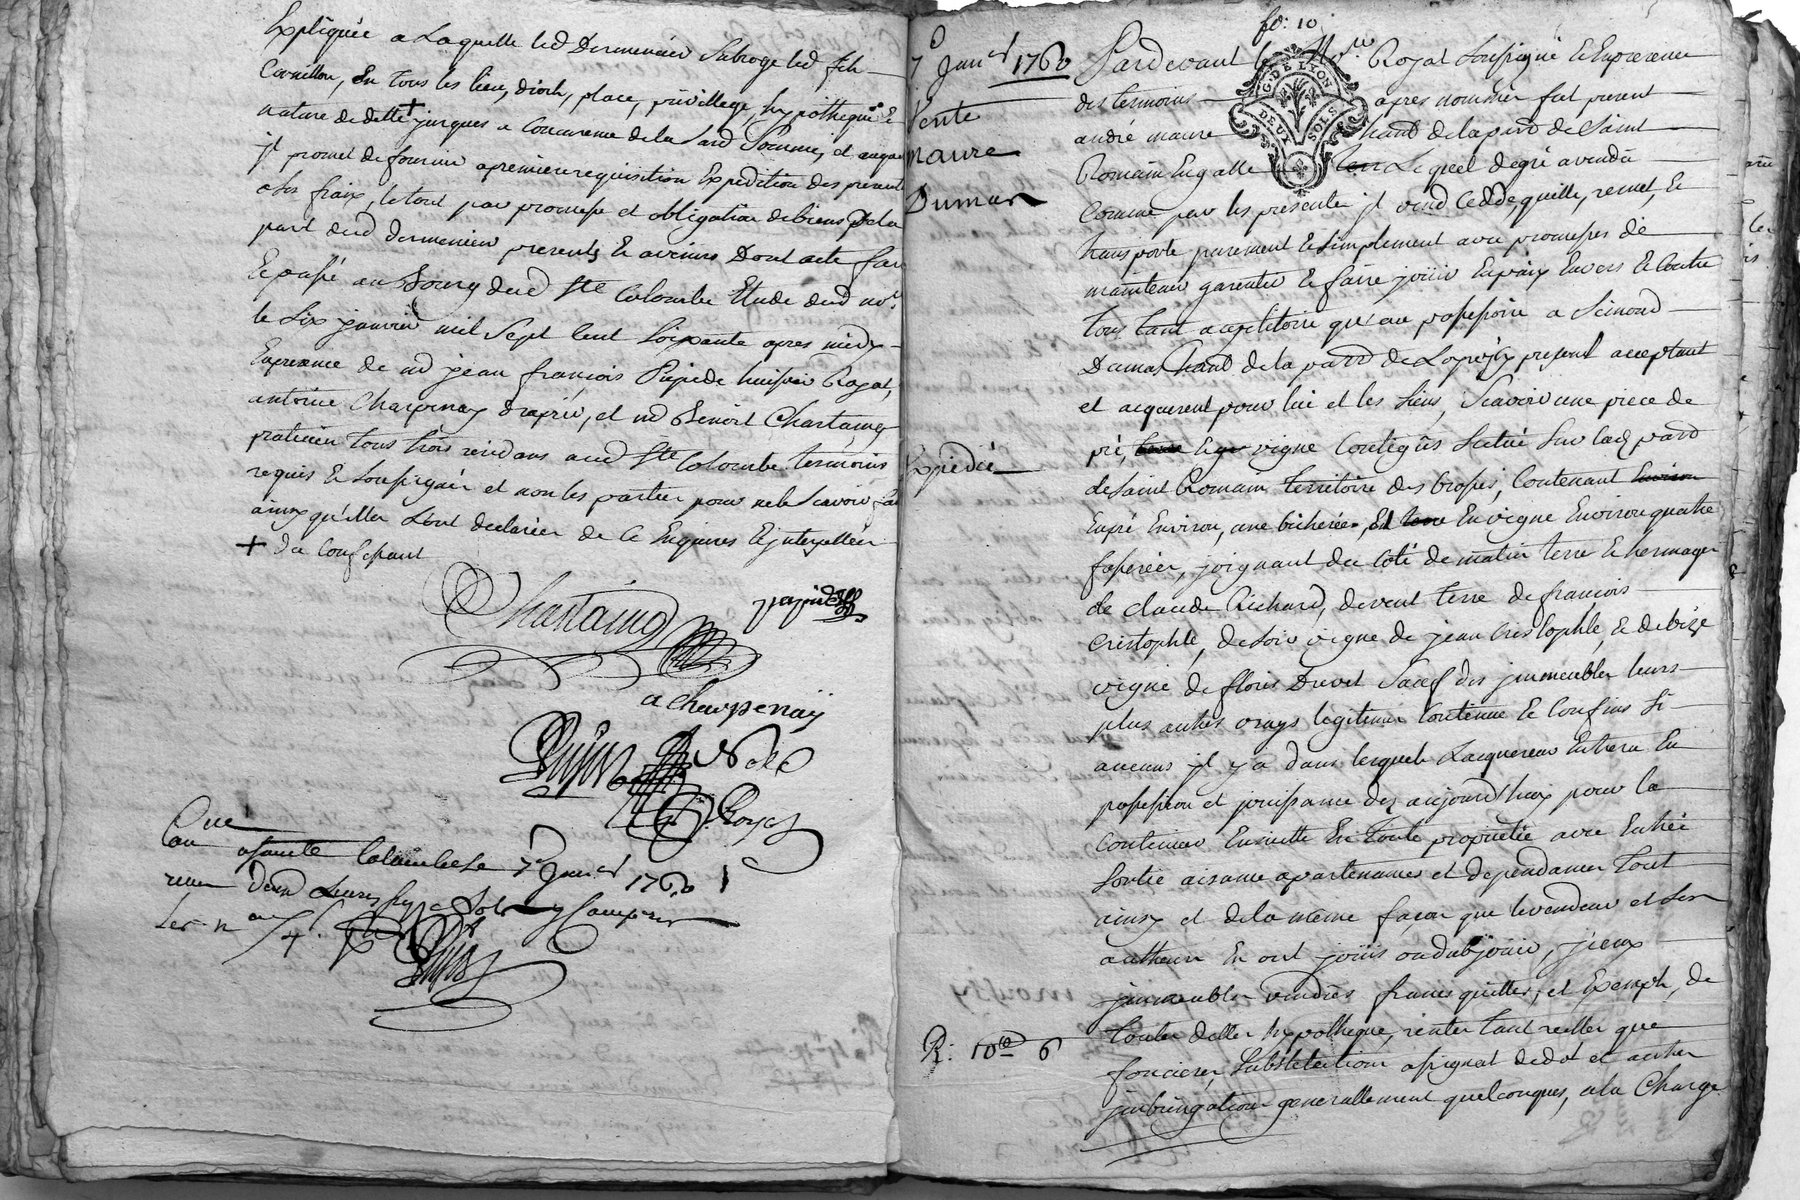 Expliquée a Laquelle led Dermenien Subroge led
Cornillon, En tous les lieux, droit, place, privillege, hypotheque Et
nature de dette + jusques a Concurrence de la Sard Somme, et
jl promet de fournir a premiere requisition Expedition des presentes
a Ses fraix, le tout par promesse et obligation de biens De la
part dud Dermenien presents Et avenirs Dont acte fait
Et passé au Bourg dud Ste Colombe Etude dud no.re
le Six janvier mil Sept Cent Soixante apres midy
En presence de jean francois huissier Royal,
antoine Charpenay et Benoit Chartaing
praticien tous trois residans aud Ste Colombe temoins
requis Et Soussignés et non les parties pour ne le Scavoir
ainsy qu'elles L'ont declarées de Ce Enquises Et jnterpellées
+ du Consepant
Chartaing
a Charpenaÿ
Royal
a sainte Colombe Le 7e Janer 1760
fo: 10
7e Janer 1760
Vente
Maure
Dumas
Expedié
R: 10 6
G. DE LYON
DEUX SOLS
Pardevant le No.re Royal Soussigné Et En presence
des temoins apres nommés fut present
andré maure hant de la parr de Saint
Romain En galle Lequel de gré a vendu
Comme par les presentes jl vend Cedde, quitte, remet, Et
transporte purement Et Simplement avec promesses de
maintenir garentir Et faire joüir En paix Envers Et Contre
tous tant au petitoire qu'au possessoire a Simond
Dumas hant de la parr de Loyre present acceptant
et acquerent pour lui et les Siens, Scavoir une piece de
pré, vigne Contigüs Scitué Sur lad parr
de Saint Romain territoire des Grosses, Contenant
En pré Environ, une bicherée, Et En vigne Environ quatre
fosserées, joignant du Coté de matin terre Et hermages
de claude Richard, de vent terre de francois
Cristophle, de Soir vigne de jean Cristophle, Et de bize
vigne de floris Drevet Sauf des jmmeubles leurs
plus autres vrays legitimes Contenue Et Confins Si
aucuns jl y a dans lesquels L'acquereur Entrera En
possession et jouissance des aujourd'huy pour la
Continuer Ensuitte En toute proprietée avec Entrée
Sortie aisance apartenances et dependances tout
ainsy et de la même façon que le vendeur et Ses
autheurs En ont joüis ou dub joüir, jceux
jmmeubles vendus francs quittes, et Exempts, de
toutes dettes hypotheque, rentes tant reelles que
foncieres Substitutions assignat de dot et autres
jmbringations generallement quelconques, a la Charge